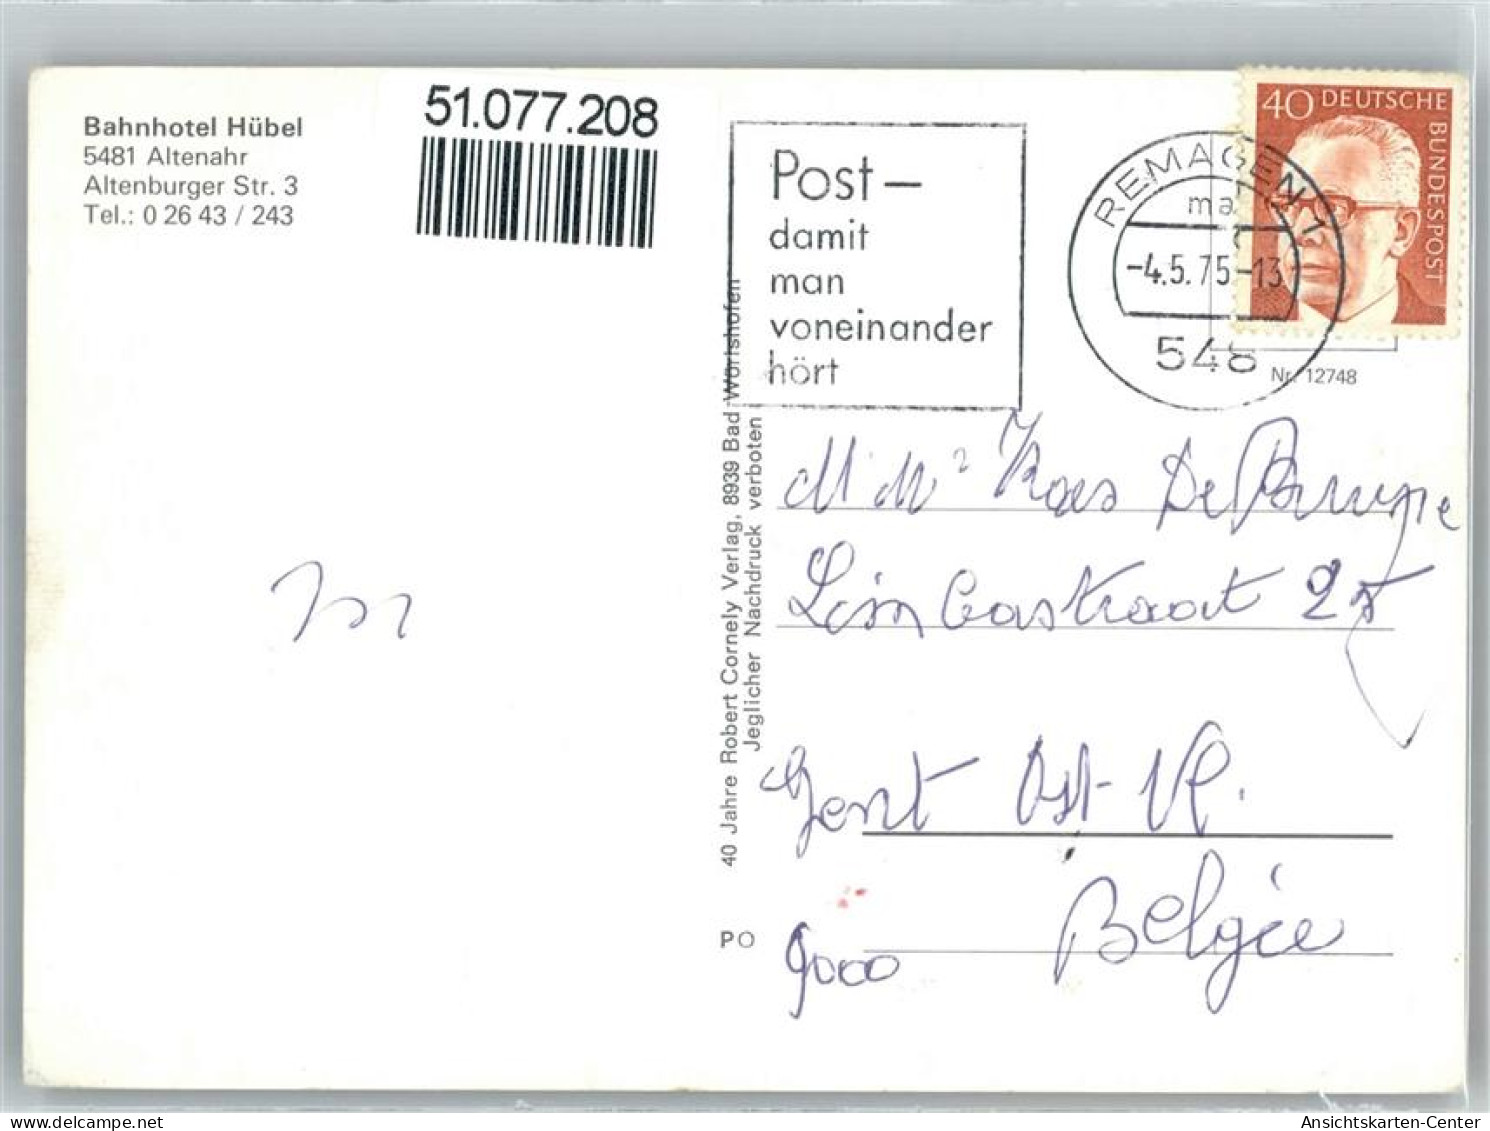 Bahnhotel Hübel
5481 Altenahr
Altenburger Str. 3
Tel.: 0 26 43 / 243
51.077.208
Post –
damit
man
voneinander
hört
REMAGEN 1
ma
-4.5.75-13
548
40 DEUTSCHE
BUNDESPOST
Nr. 12748
40 Jahre Robert Cornely Verlag, 8939 Bad Wörishofen
Jeglicher Nachdruck verboten
PO
M. Mr Roes De Bruyne
Limbastraat 25
Gent Ost-Vl.
9000 Belgie
Ansichtskarten-Center